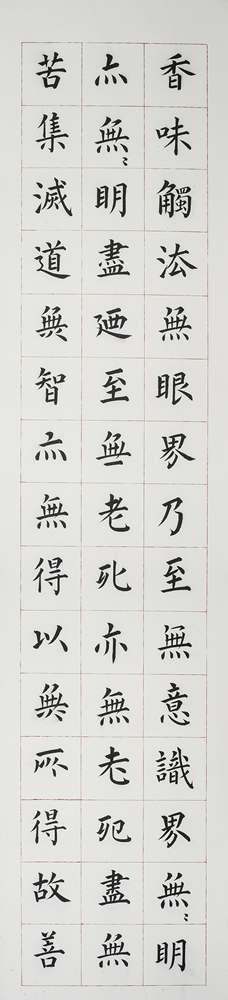 香味觸法無眼界乃至無意識界無〻明
亦無〻明盡廼至無老死亦無老死盡無
苦集滅道無智亦無得以無所得故善